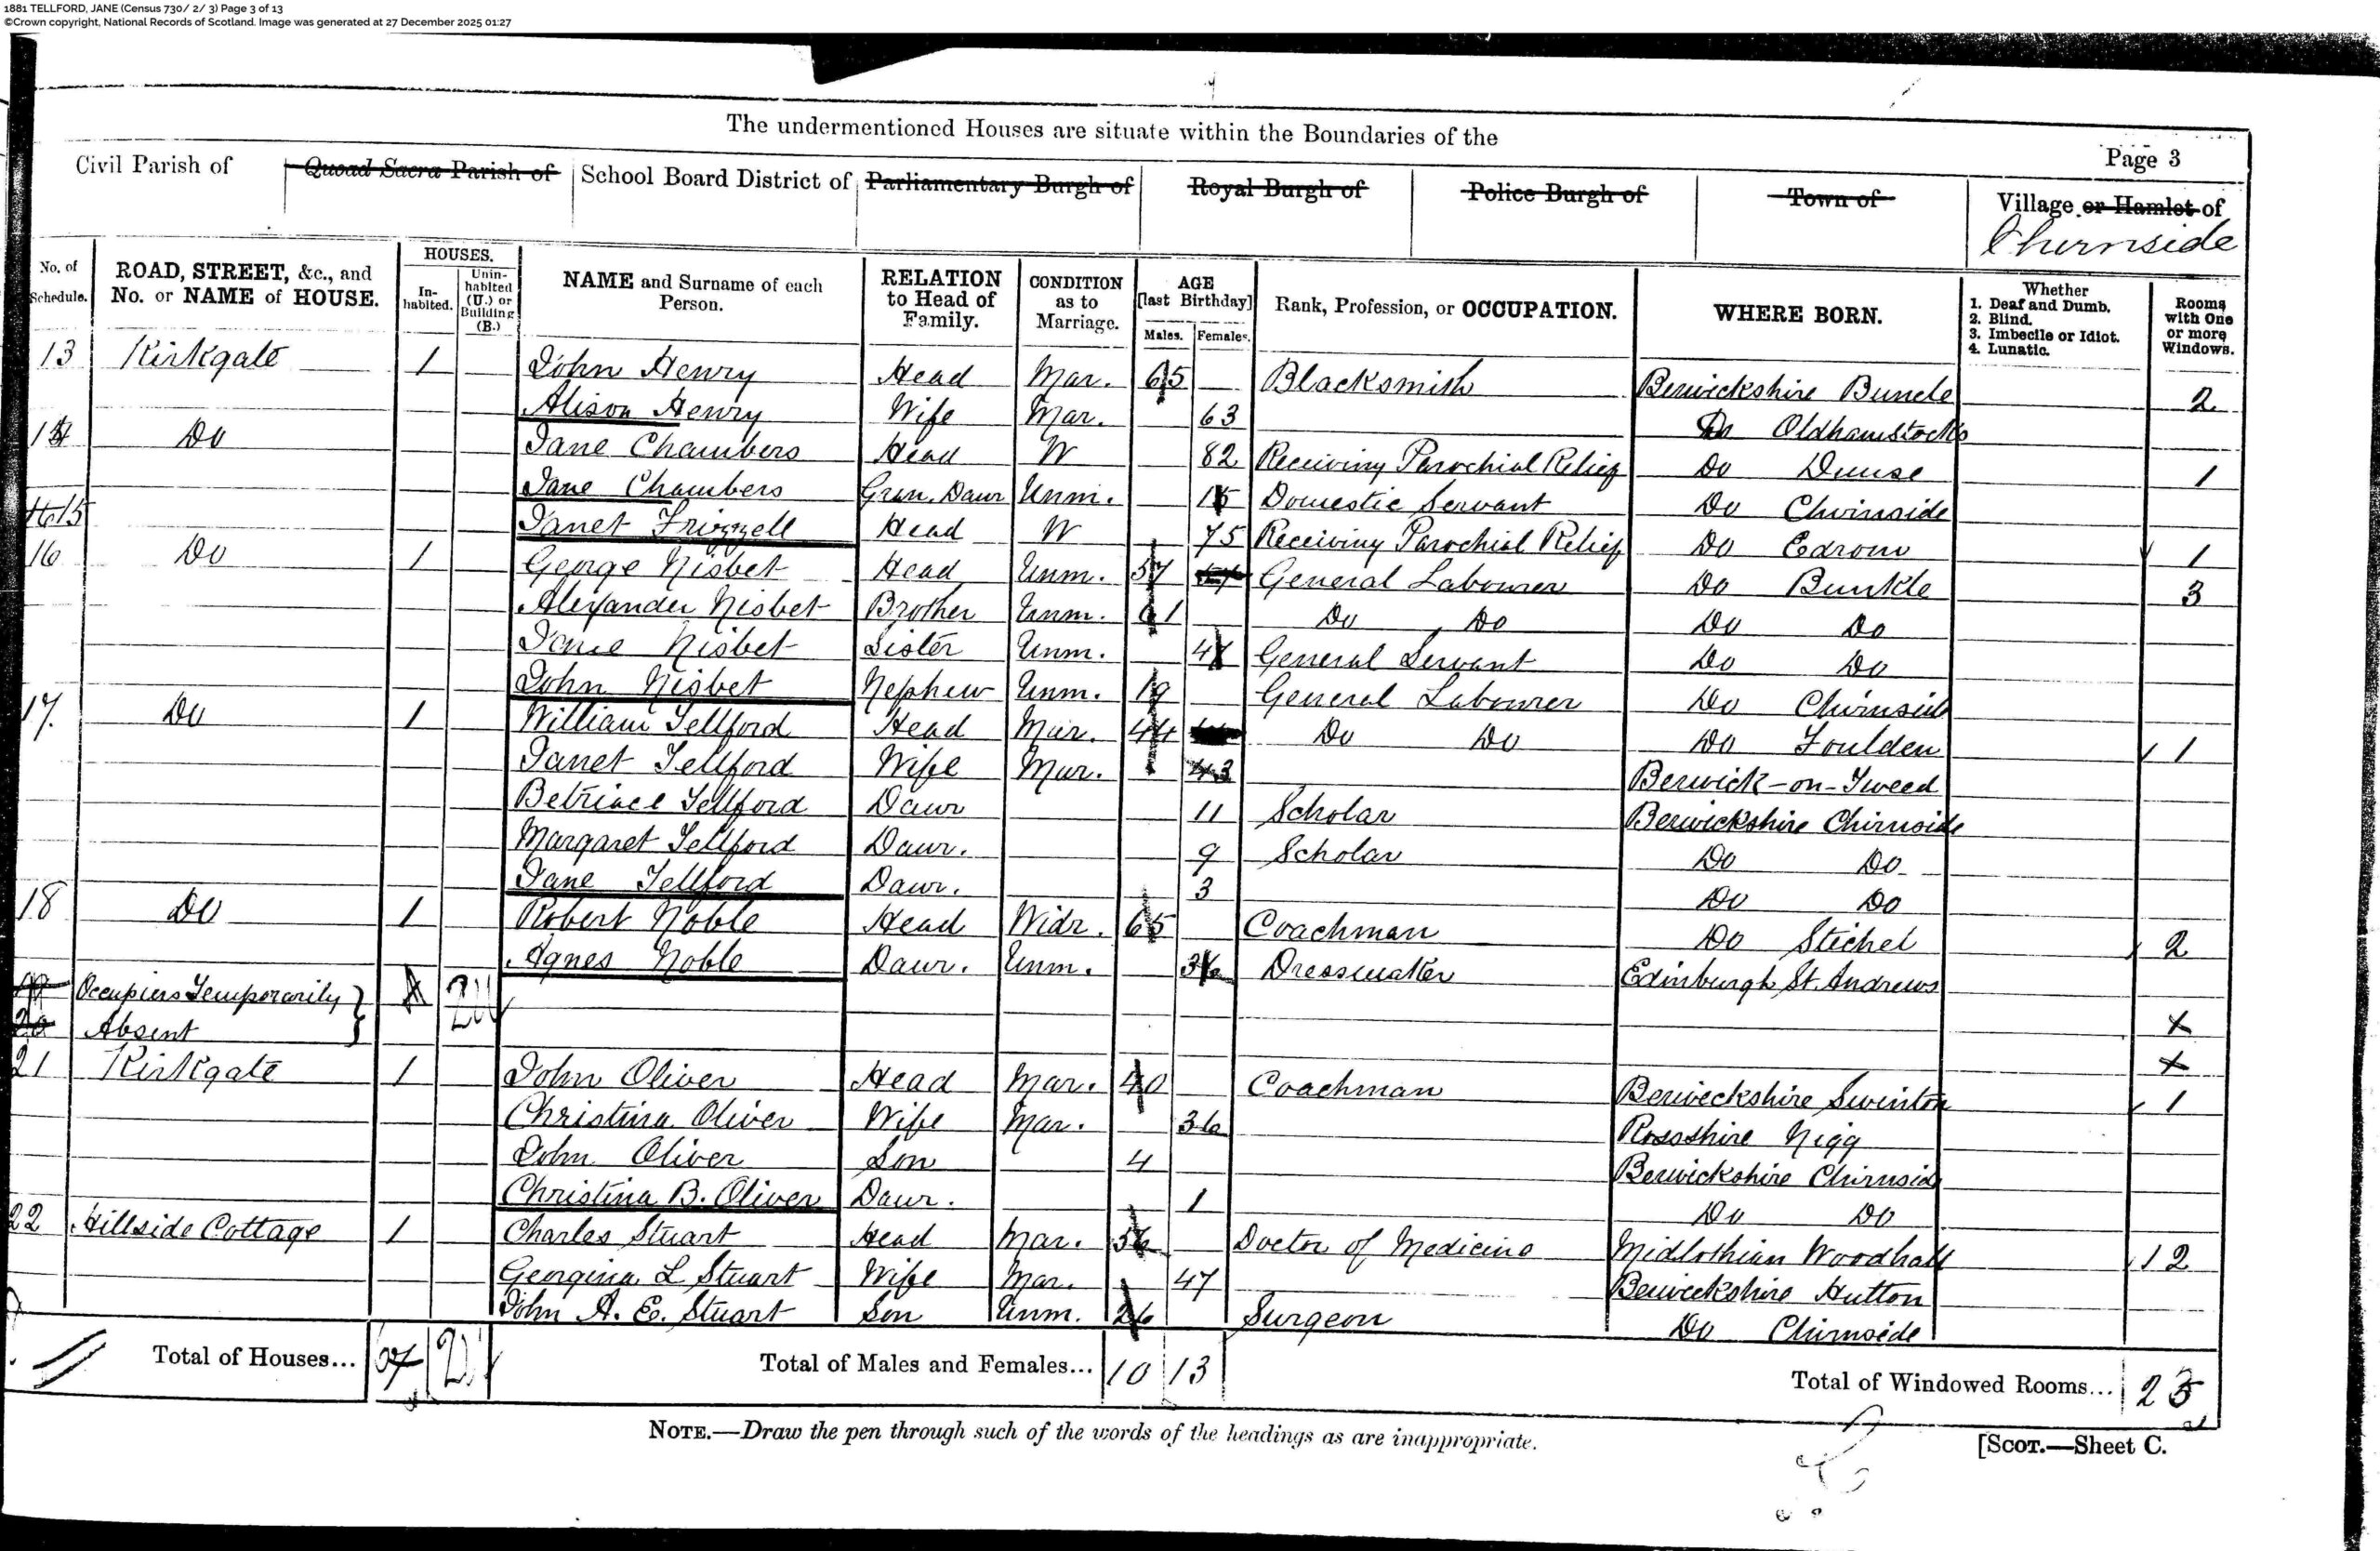 1881 TELLFORD, JANE (Census 730/ 2/ 3) Page 3 of 13
©Crown copyright, National Records of Scotland. Image was generated at 27 December 2025 01:27
The undermentioned Houses are situate within the Boundaries of the
Page 3
Civil Parish of Quoad Sacra Parish of School Board District of Parliamentary Burgh of Royal Burgh of Police Burgh of Town of Village or Hamlet of
Chirnside
No. of Schedule. ROAD, STREET, &c., and No. or NAME of HOUSE. HOUSES. Inhabited. Uninhabited (U.) or Building (B.) NAME and Surname of each Person. RELATION to Head of Family. CONDITION as to Marriage. AGE [last Birthday] Males. Females. Rank, Profession, or OCCUPATION. WHERE BORN. Whether 1. Deaf and Dumb. 2. Blind. 3. Imbecile or Idiot. 4. Lunatic. Rooms with One or more Windows.
13 Kirkgate 1 John Henry Head Mar. 65 Blacksmith Berwickshire Buncle 2
Alison Henry Wife Mar. 63 Do Oldhamstocks
14 Do Jane Chambers Head W 82 Receiving Parochial Relief Do Dunse 1
Jane Chambers Gran. Daur Unm. 15 Domestic Servant Do Chirnside
15 Janet Frizzell Head W 75 Receiving Parochial Relief Do Edrom 1
16 Do 1 George Nisbet Head Unm. 57 General Labourer Do Bunkle 3
Alexander Nisbet Brother Unm. 61 Do Do Do Do
Jane Nisbet Sister Unm. General Servant Do Do
John Nisbet Nephew Unm. 19 General Labourer Do Chirnside
17. Do 1 William Tellford Head Mar. 44 Do Do Do Foulden 1
Janet Tellford Wife Mar. 43 Berwick-on-Tweed
Betriace Tellford Daur 11 Scholar Berwickshire Chirnside
Margaret Tellford Daur. 9 Scholar Do Do
Jane Tellford Daur. 3 Do Do
18 Do 1 Robert Noble Head Widr. 65 Coachman Do Stichel 2
Agnes Noble Daur. Unm. 36 Dressmaker Edinburgh St. Andrews
19 Occupiers Temporarily } 2U x
20 Absent x
21 Kirkgate 1 John Oliver Head Mar. 40 Coachman Berwickshire Swinton 1
Christina Oliver Wife Mar. 36 Rossshire Nigg
John Oliver Son 4 Berwickshire Chirnside
Christina B. Oliver Daur. 1 Do Do
22 Hillside Cottage 1 Charles Stuart Head Mar. 56 Doctor of Medicine Midlothian Woodhall 12
Georgina L Stuart Wife Mar. 47 Berwickshire Hutton
John A. E. Stuart Son Unm. 26 Surgeon Do Chirnside
Total of Houses... Total of Males and Females... 10 13 Total of Windowed Rooms... 23
NOTE.—Draw the pen through such of the words of the headings as are inappropriate.
[SCOT.—Sheet C.